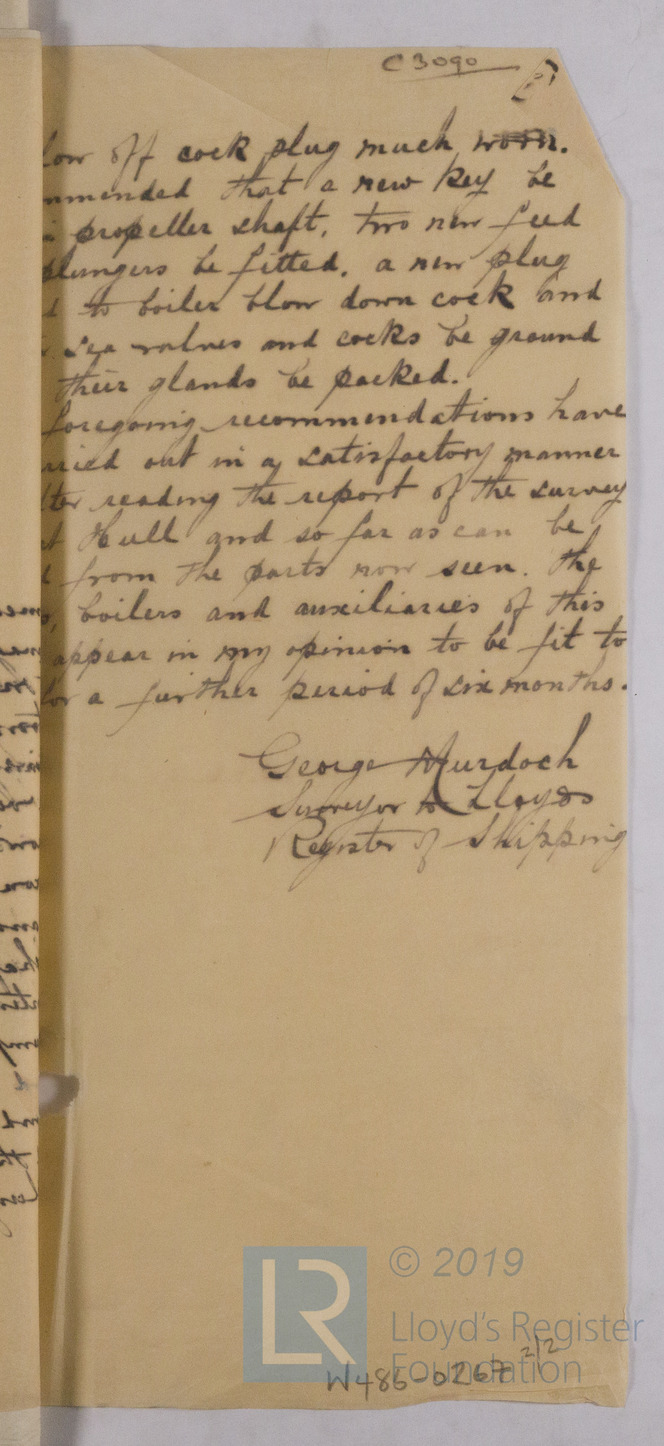 C 3090
low off cock plug much worn.
mmended that a new key be
propeller shaft, two new feed
plungers be fitted, a new plug
d to boiler blow down cock and
sea valves and cocks be ground
their glands be packed.
foregoing recommendations have
rried out in a satisfactory manner
fter reading the report of the survey
at Hull and so far as can be
d from the parts now seen. The
s, boilers and auxiliaries of this
appear in my opinion to be fit to
for a further period of six months.
George Murdoch
Surveyor to Lloyds
Register of Shipping
LR
© 2019
Lloyd's Register
Foundation
W486-0267 2/2